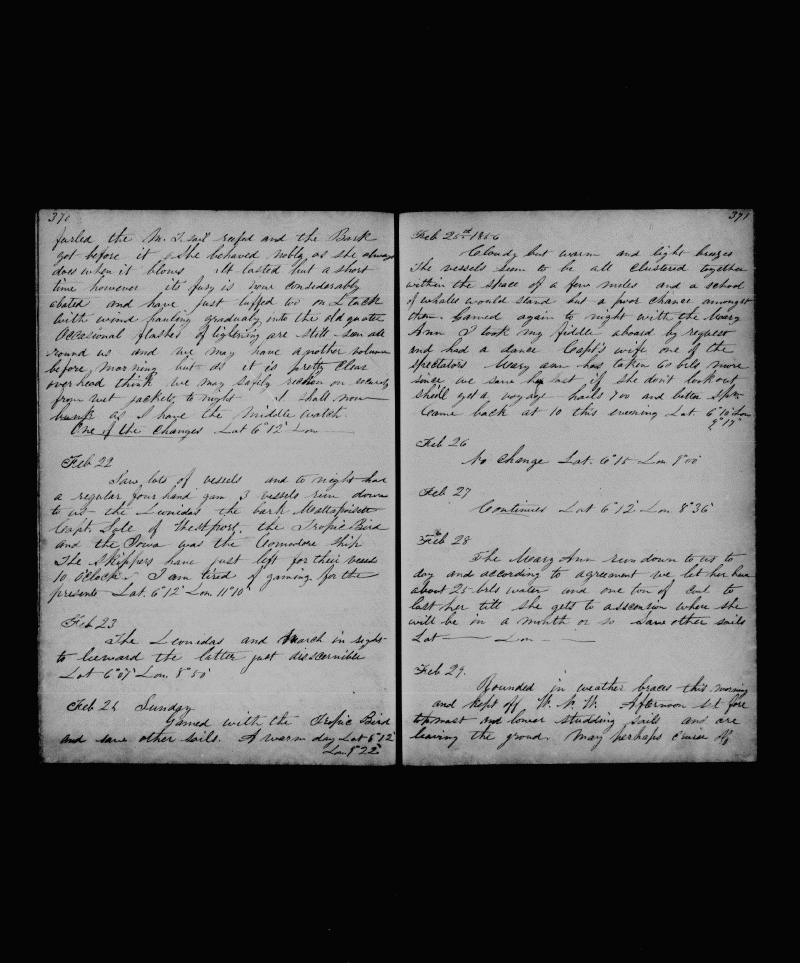 370
furled the M. T. sail reefed and the Bark
got before it & she behaved nobly as she always
does when it blows. It lasted but a short
time however its fury is now considerably
abated and have just luffed too on L tack
with wind hauling gradualy into the old quater
Occasional flashes of lightning are still seen all
round us and we may have another
before morning but as it is pretty clear
over head think we may safely reckon on
from wet jackets to night. I shall now
bunk as I have the middle watch
One of the changes Lat 6°12' Lon
Feb 22
Saw lots of vessels and to night had
a regular four hand gam 3 vessels run down
to us the Leonidas the bark Mattapoisett
Capt. Sole of Westport, the Tropic Bird
and the Iowa was the Comodore Ship
The Skippers have just left for their vessels
10 Oclock. I am tired of gaming for the
present Lat. 6°12' Lon 11°10'
Feb 23
The Leonidas and March in sight
to leeward the latter just discernible
Lat 6°07' Lon. 8°50'
Feb 24 Sunday
Gamed with the Tropic Bird
and saw other sails. A warm day Lat 6°12'
Lon. 9°22'
371
Feb 25d 1856
Cloudy but warm and light breezes
The vessels seem to be all clustered together
within the space of a few miles and a school
of whales would stand but a poor chance amongst
them. Gamed again to night with the Meary
Ann I took my fiddle aboard by request
and had a dance Capt's wife one of the
spectators Meary ann has taken 60 bbls more
since we saw her last if she dont look out
she'll get a voyage hails 700 and better Spr.
Came back at 10 this evening Lat 6°10' Lon
9°17'
Feb 26
No change Lat. 6°15 Lon 9°00'
Feb 27
Continues Lat 6°12' Lon 8°36'
Feb 28
The Meary Ann run down to us to
day and according to agreement we let her have
about 25 brls water and one ton of
last her till she gets to ascension where she
will be in a month or so Saw other sails
Lat Lon
Feb 29.
Rounded in weather braces this morning
and kept off W. N. W. Afternoon set fore
topmast and lower studding sails and are
leaving the ground. May perhaps cruise